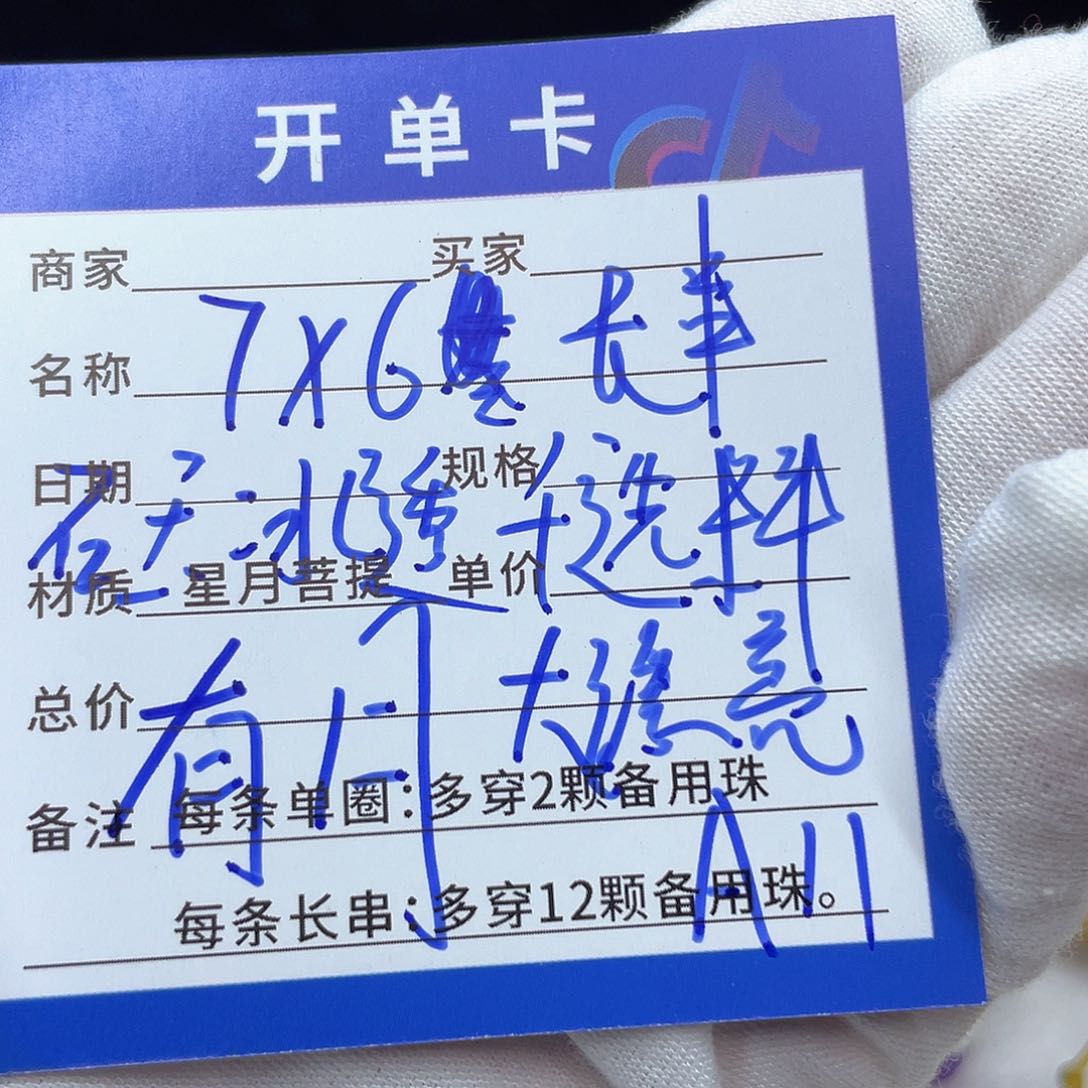 开单卡
商家 买家
名称 7X6 长串
日期 规格
石天冰 选料
材质 星月菩提 单价
总价 有 大漂亮
备注 每条单圈：多穿2颗备用珠
A11
每条长串：多穿12颗备用珠。